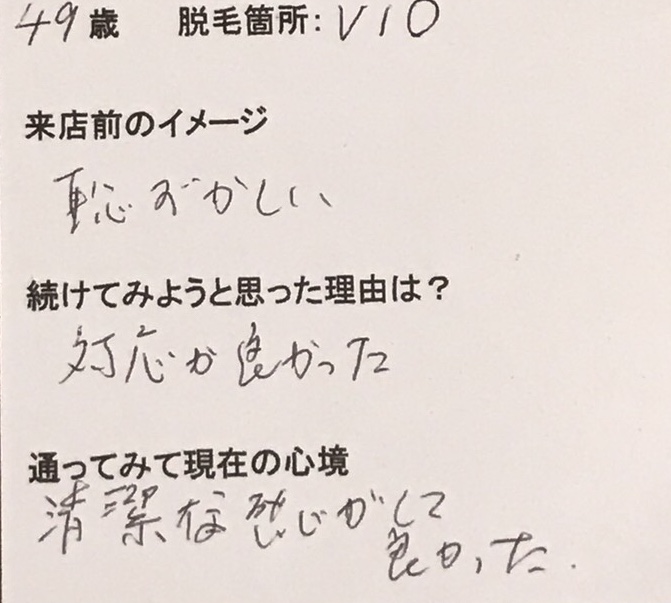 49歳 脱毛箇所:VIO
来店前のイメージ
恥ずかしい、
続けてみようと思った理由は？
対応が良かった
通ってみて現在の心境
清潔な感じがして
良かった.